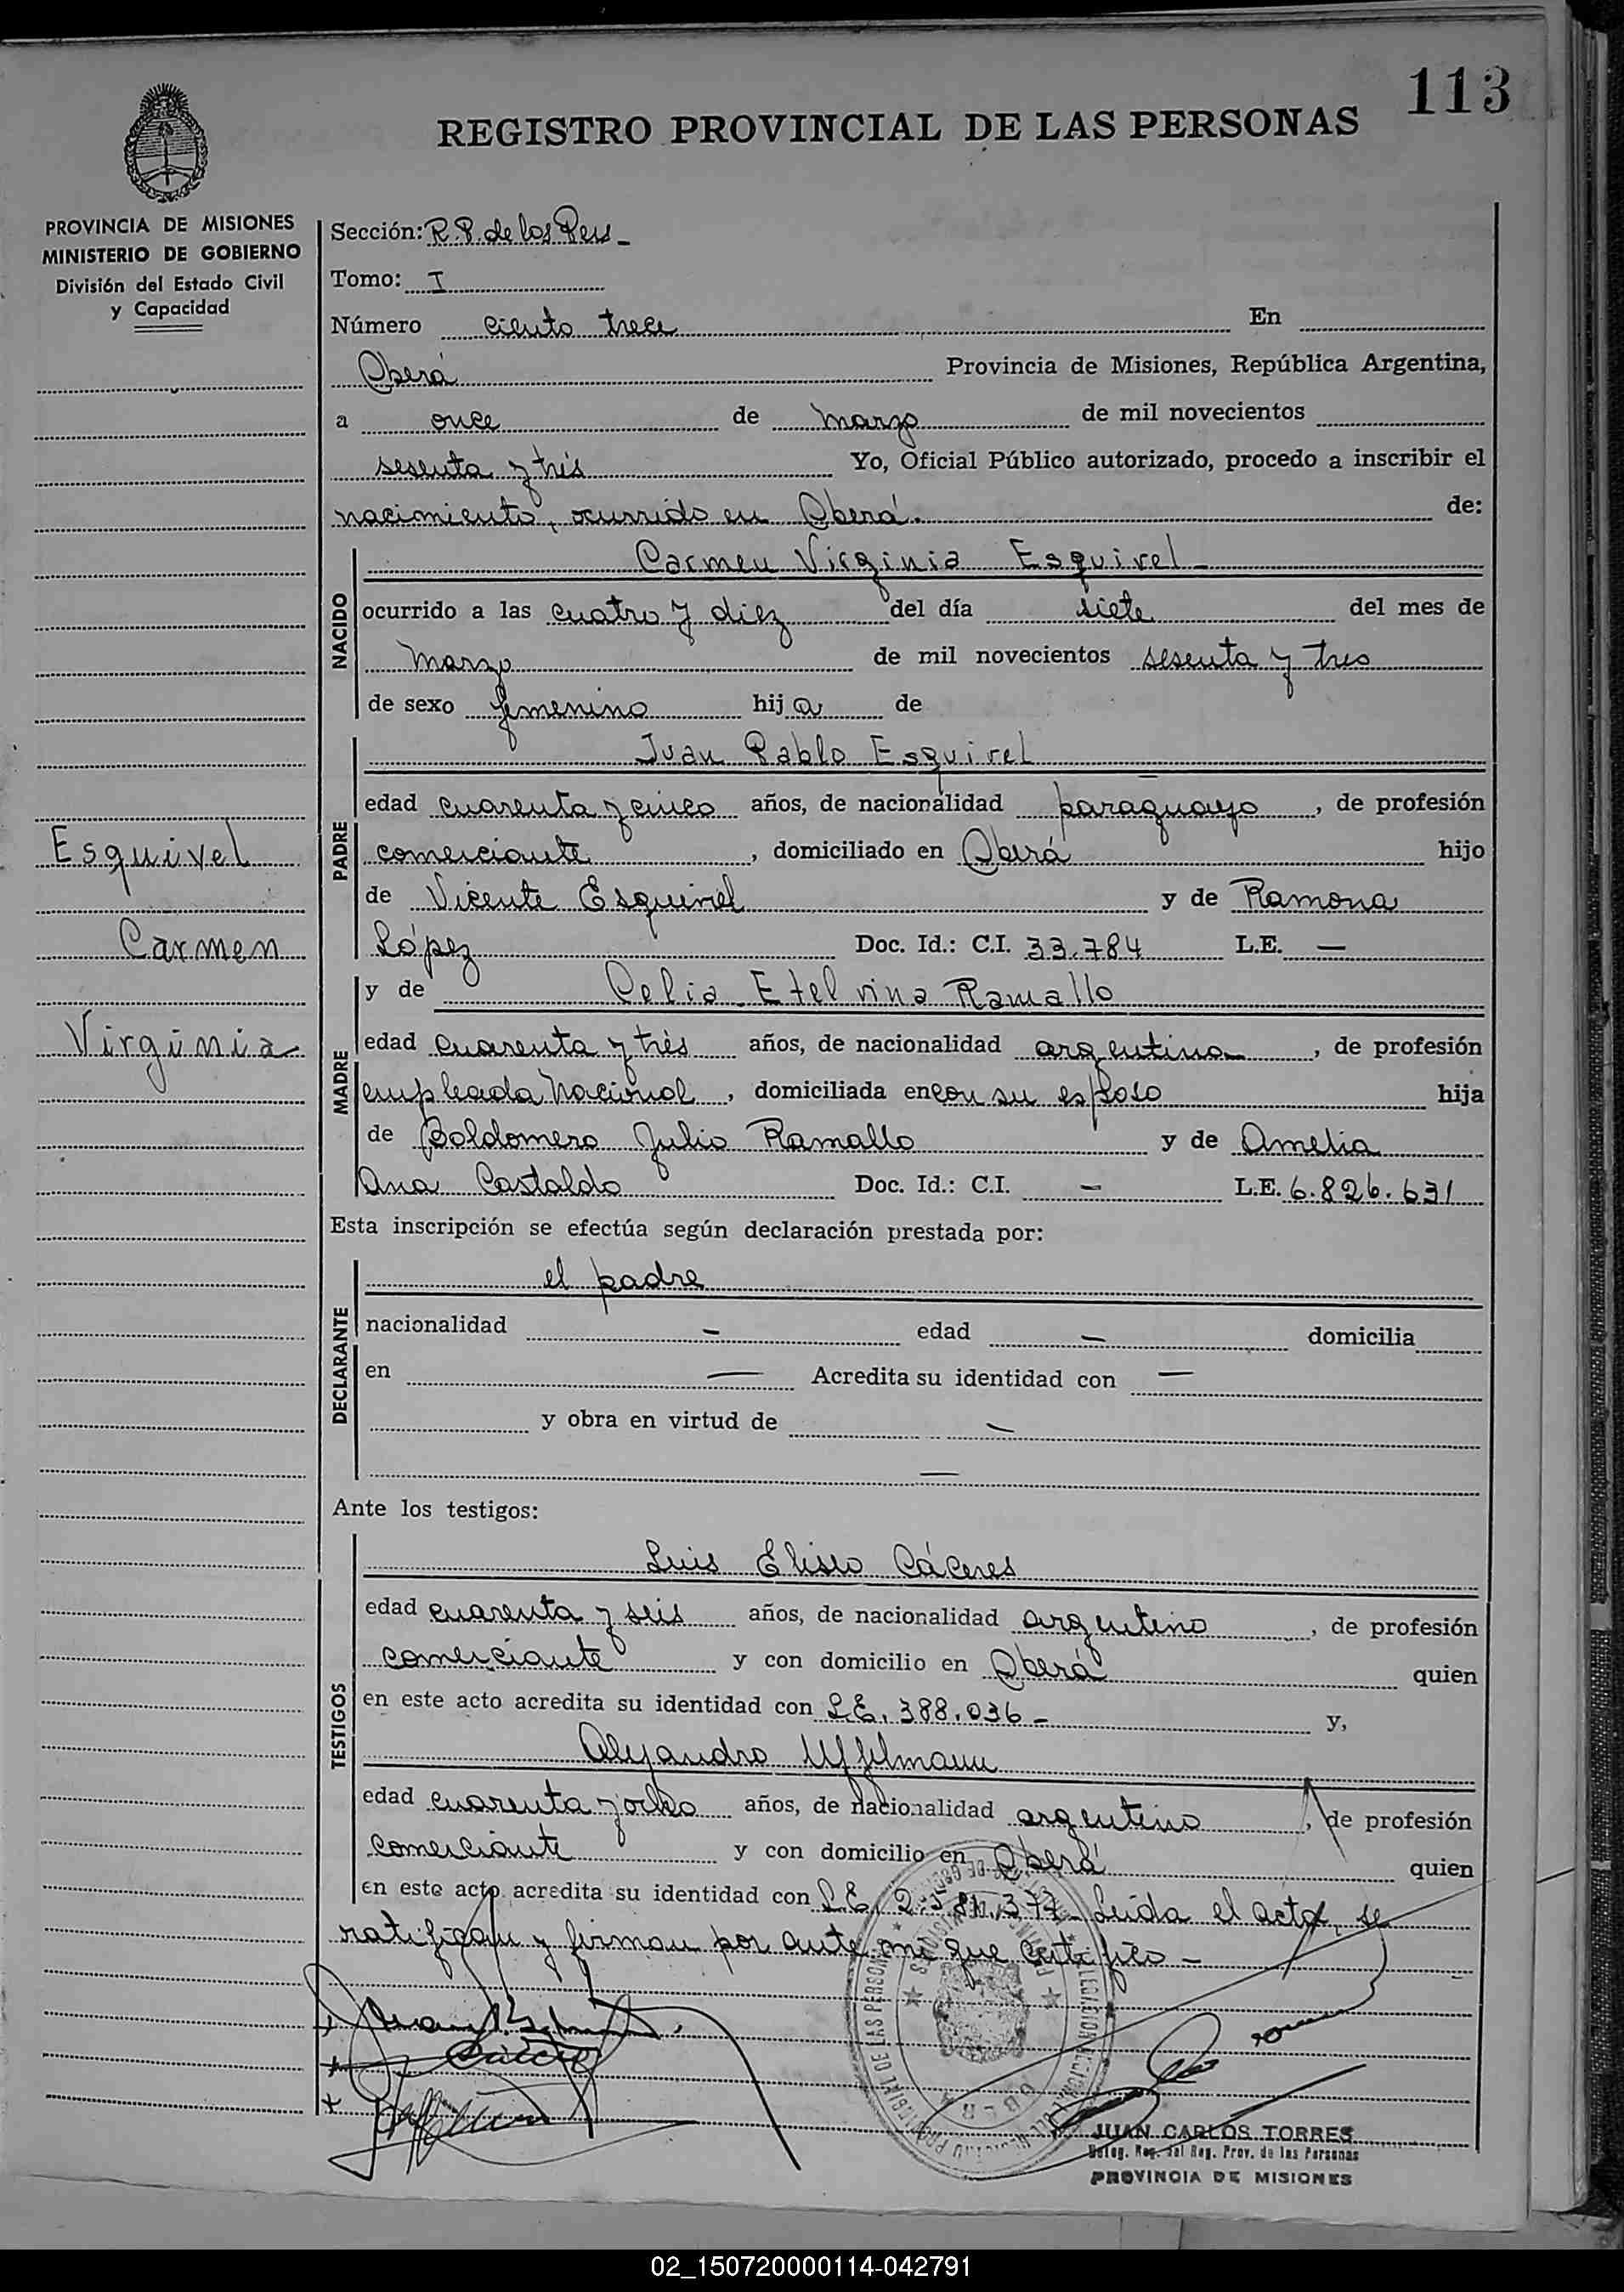 113
REGISTRO PROVINCIAL DE LAS PERSONAS
PROVINCIA DE MISIONES
MINISTERIO DE GOBIERNO
División del Estado Civil
y Capacidad
Esquivel
Carmen
Virginia
Sección: R. P. de las Pers -
Tomo: I
Número ciento trece En
Oberá Provincia de Misiones, República Argentina,
a once de marzo de mil novecientos
sesenta y trés Yo, Oficial Público autorizado, procedo a inscribir el
nacimiento, ocurrido en Oberá. de:
NACIDO
Carmen Virginia Esquivel -
ocurrido a las cuatro y diez del día siete del mes de
marzo de mil novecientos sesenta y tres
de sexo femenino hij a de
PADRE
Juan Pablo Esquivel
edad cuarenta y cinco años, de nacionalidad paraguayo, de profesión
comerciante, domiciliado en Oberá hijo
de Vicente Esquivel y de Ramona
López Doc. Id.: C.I. 33.784 L.E. —
MADRE
y de Celia Etelvina Ramallo
edad cuarenta y trés años, de nacionalidad argentina, de profesión
empleada Nacional, domiciliada en con su esposo hija
de Baldomero Julio Ramallo y de Amelia
Ana Castaldo Doc. Id.: C.I. - L.E. 6.826.631
Esta inscripción se efectúa según declaración prestada por:
DECLARANTE
el padre
nacionalidad - edad - domicilia
en — Acredita su identidad con —
y obra en virtud de —
—
Ante los testigos:
TESTIGOS
Luis Eliseo Cáceres
edad cuarenta y seis años, de nacionalidad argentino, de profesión
comerciante y con domicilio en Oberá quien
en este acto acredita su identidad con L.E. 388.036 - y,
Alejandro
edad cuarenta y ocho años, de nacionalidad argentino, de profesión
comerciante y con domicilio en Oberá quien
en este acto acredita su identidad con L.E. 2.581.377 - Leída el acta, se
ratifican y firman por ante mi que certifico -
JUAN CARLOS TORRES
Deleg. Reg. del Reg. Prov. de las Personas
PROVINCIA DE MISIONES
02_150720000114-042791